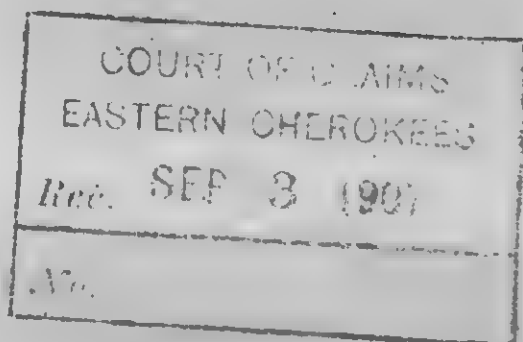 COURT OF CLAIMS
EASTERN CHEROKEES
Rec. SEP 3 1907
No.